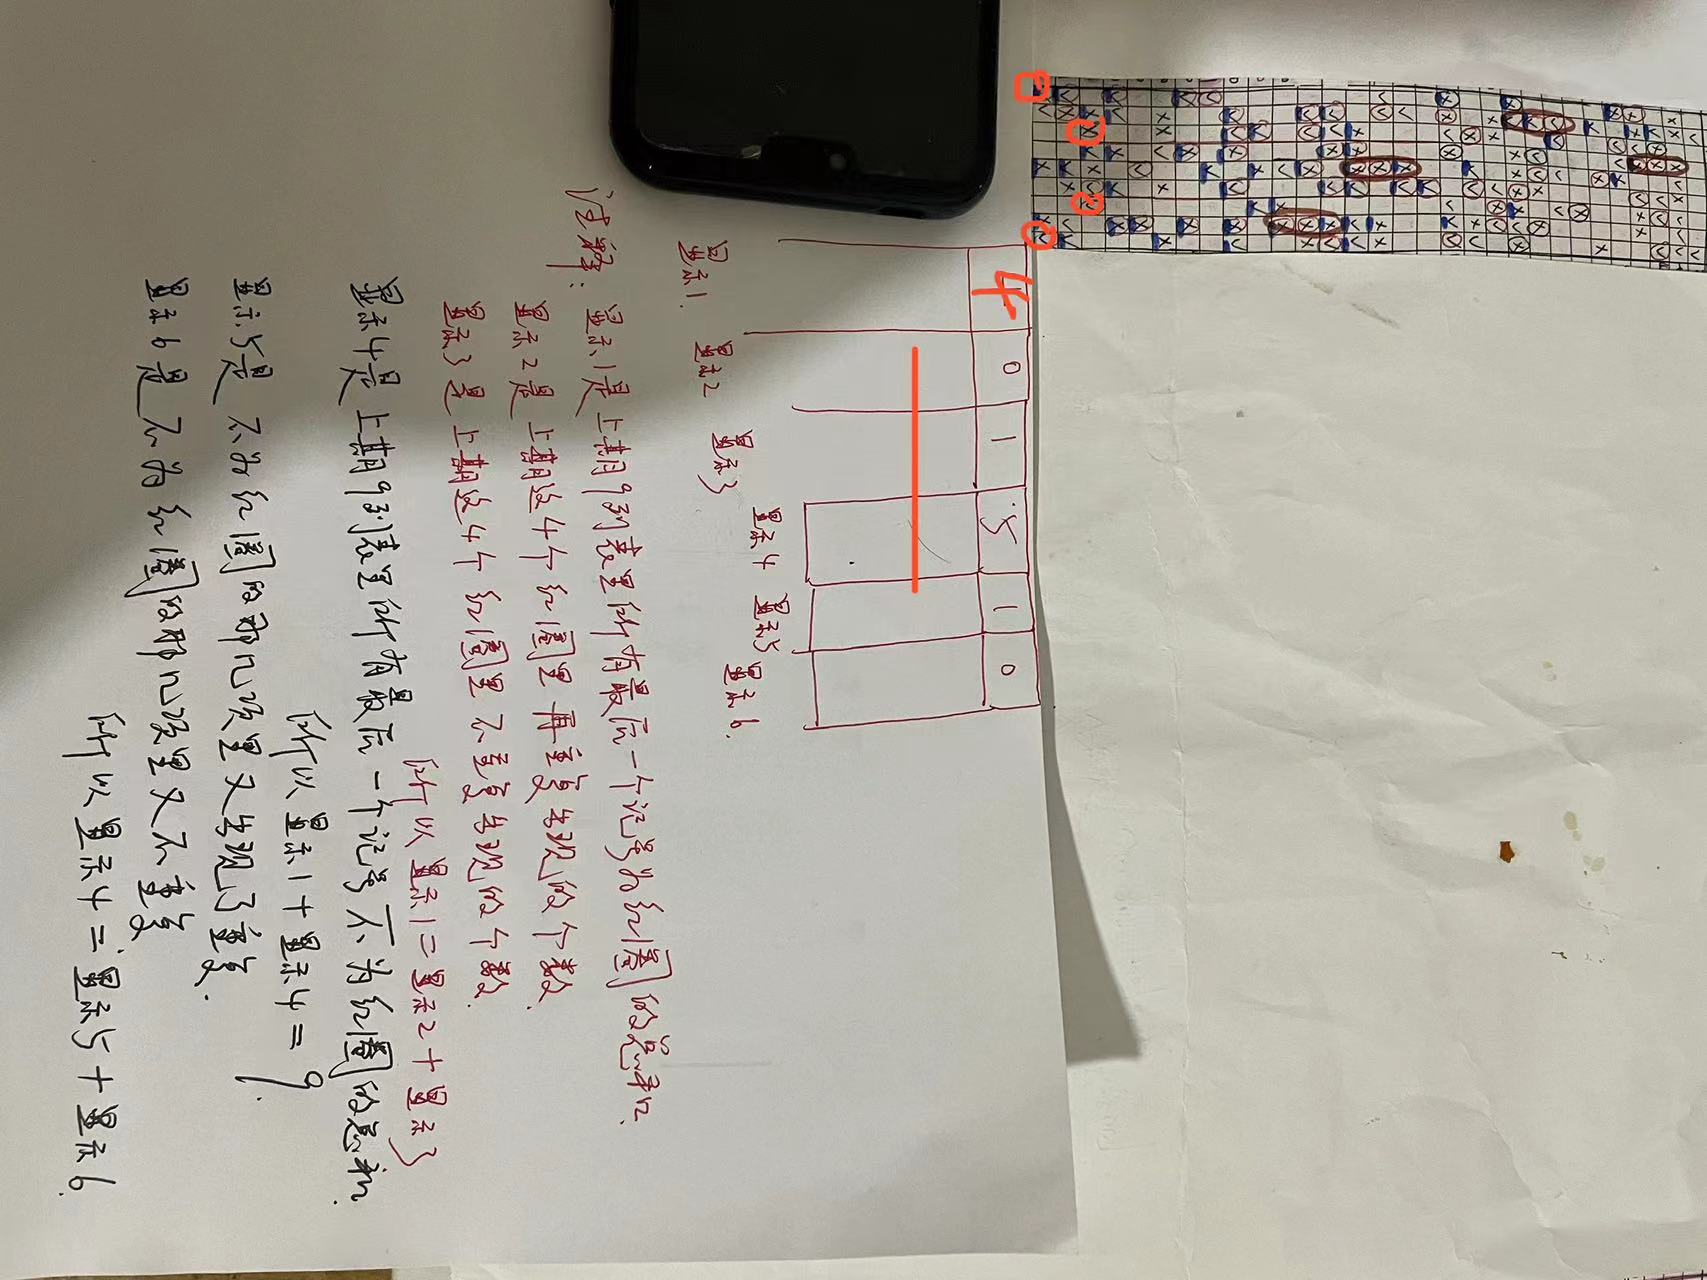 4 0 1 5 1 0
显示1. 显示2 显示3 显示4 显示5 显示6.
注释: 显示1是上期9列表里所有最后一个记号为红圈的总和.
显示2是上期这4个红圈里再重复出现的个数.
显示3是上期这4个红圈里不重复出现的个数.
所以显示1=显示2+显示3
显示4是上期9列表里所有最后一个记号不为红圈的总和.
所以显示1+显示4=9.
显示5是不为红圈的那几项里又出现了重复.
显示6是不为红圈的那几项里又不重复.
所以显示4=显示5+显示6.